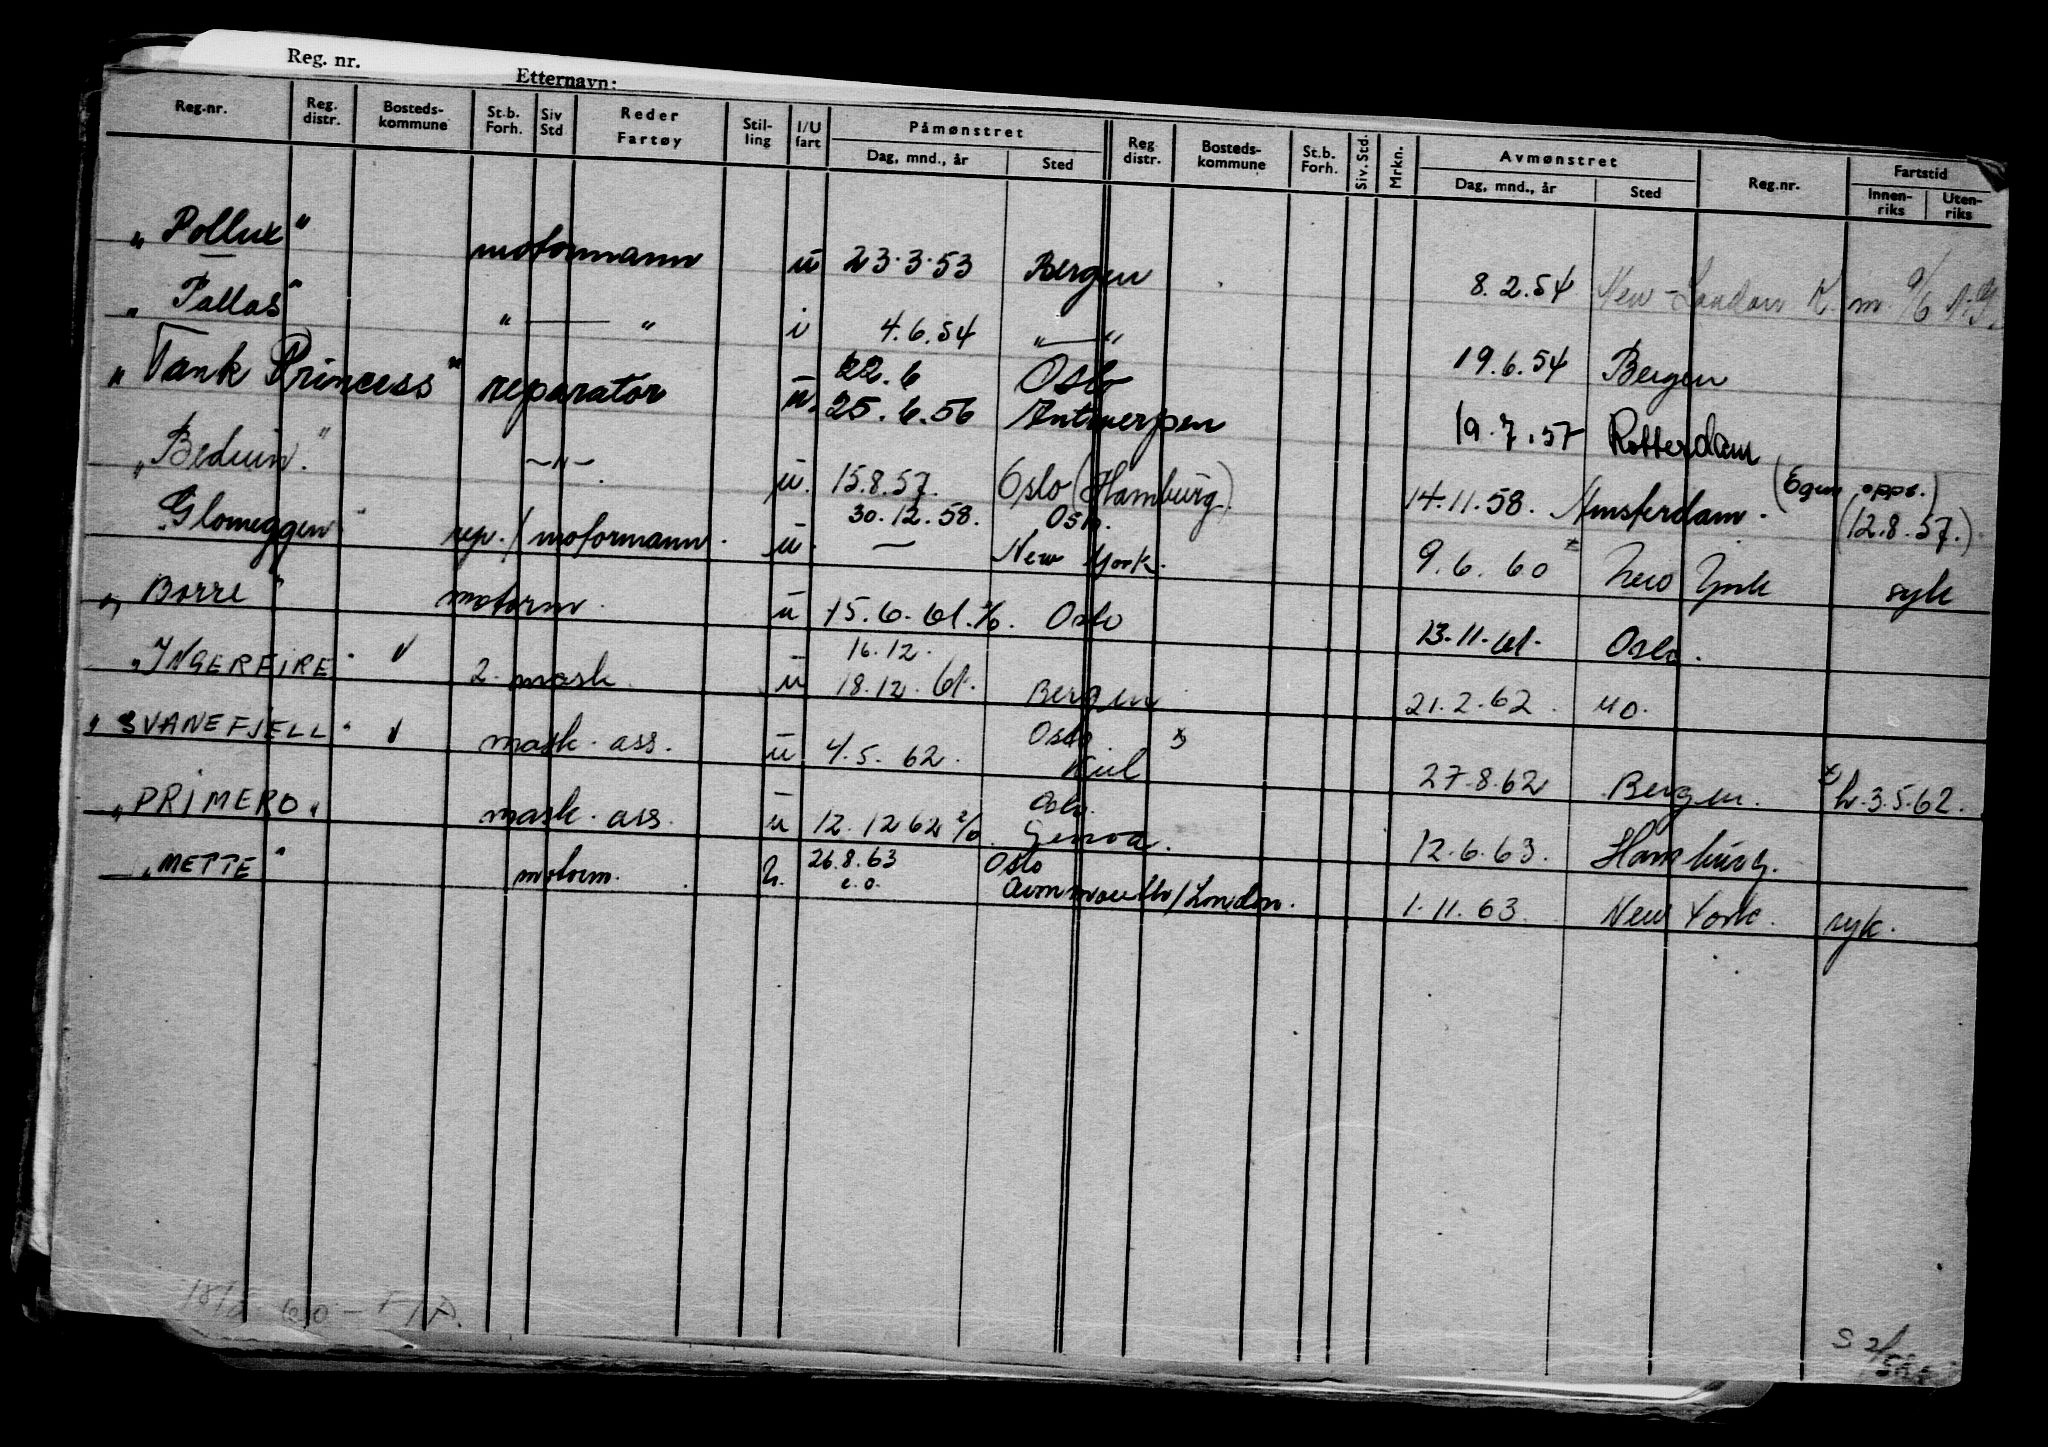 Reg. nr.
Etternavn:
Reg.nr. Reg. distr. Bosteds-kommune St.b. Forh. Siv Std Reder Fartøy Stil-ling I/U fart Påmønstret Dag, mnd., år Sted Reg distr. Bosteds-kommune St.b. Forh. Siv. Std. Mrkn. Avmønstret Dag, mnd., år Sted Reg.nr. Fartstid Innen-riks Uten-riks
"Pollux" motormann u 23.3.53 Bergen 8.2.54 New-London K. m. 9/6
"Pallas" " — " i 4.6.54 " — " 19.6.54 Bergen
"Tank Princess" reparatør u. 22.6 Oslo
25.6.56 Antwerpen 19.7.57 Rotterdam
"Beduin." — " — u. 15.8.57. Oslo (Hamburg) 14.11.58. Amsterdam. (Egen opps.)
(12.8.57.)
"Glomeggen" rep./motormann. u. 30.12.58. Oslo.
— New York. 9.6.60 New York syk
"Borre" motorm. u 15.6.61. Oslo 13.11.61. Oslo.
"INGEREIRE" 2. mask. u 16.12.
18.12.61. Bergen 21.2.62. Mo.
"SVANEFJELL" mask. ass. u 4.5.62. Oslo
Kiel 27.8.62 Bergen. h. 3.5.62.
"PRIMERO" mask. ass. u 12.12.62 Oslo.
Genoa. 12.6.63. Hamburg.
"METTE" motorm. u. 26.8.63 Oslo
e.o. Avonmouth/London. 1.11.63. New York. syk.